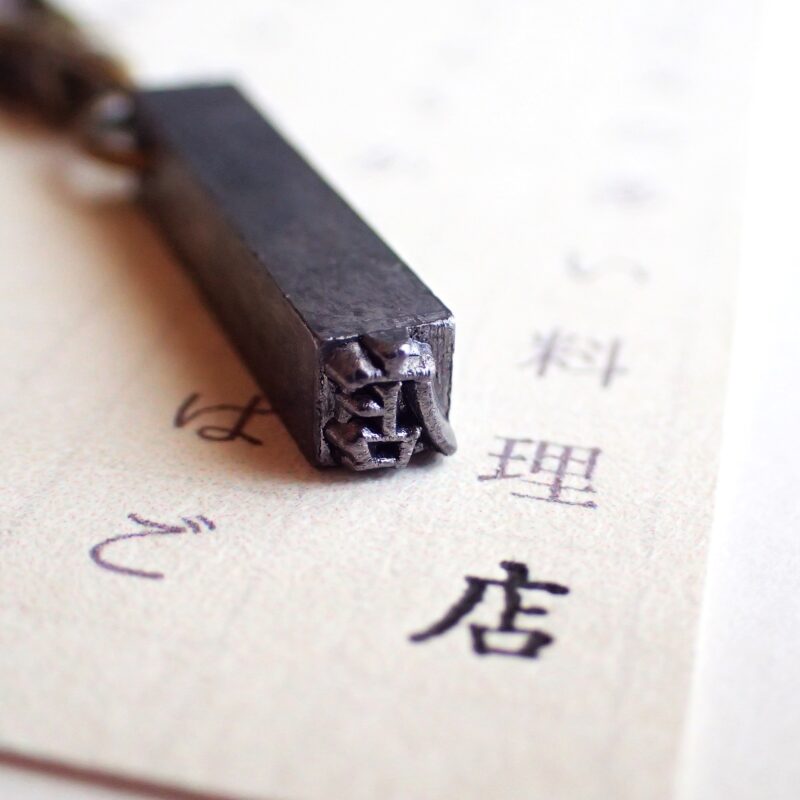 い料理店
はで